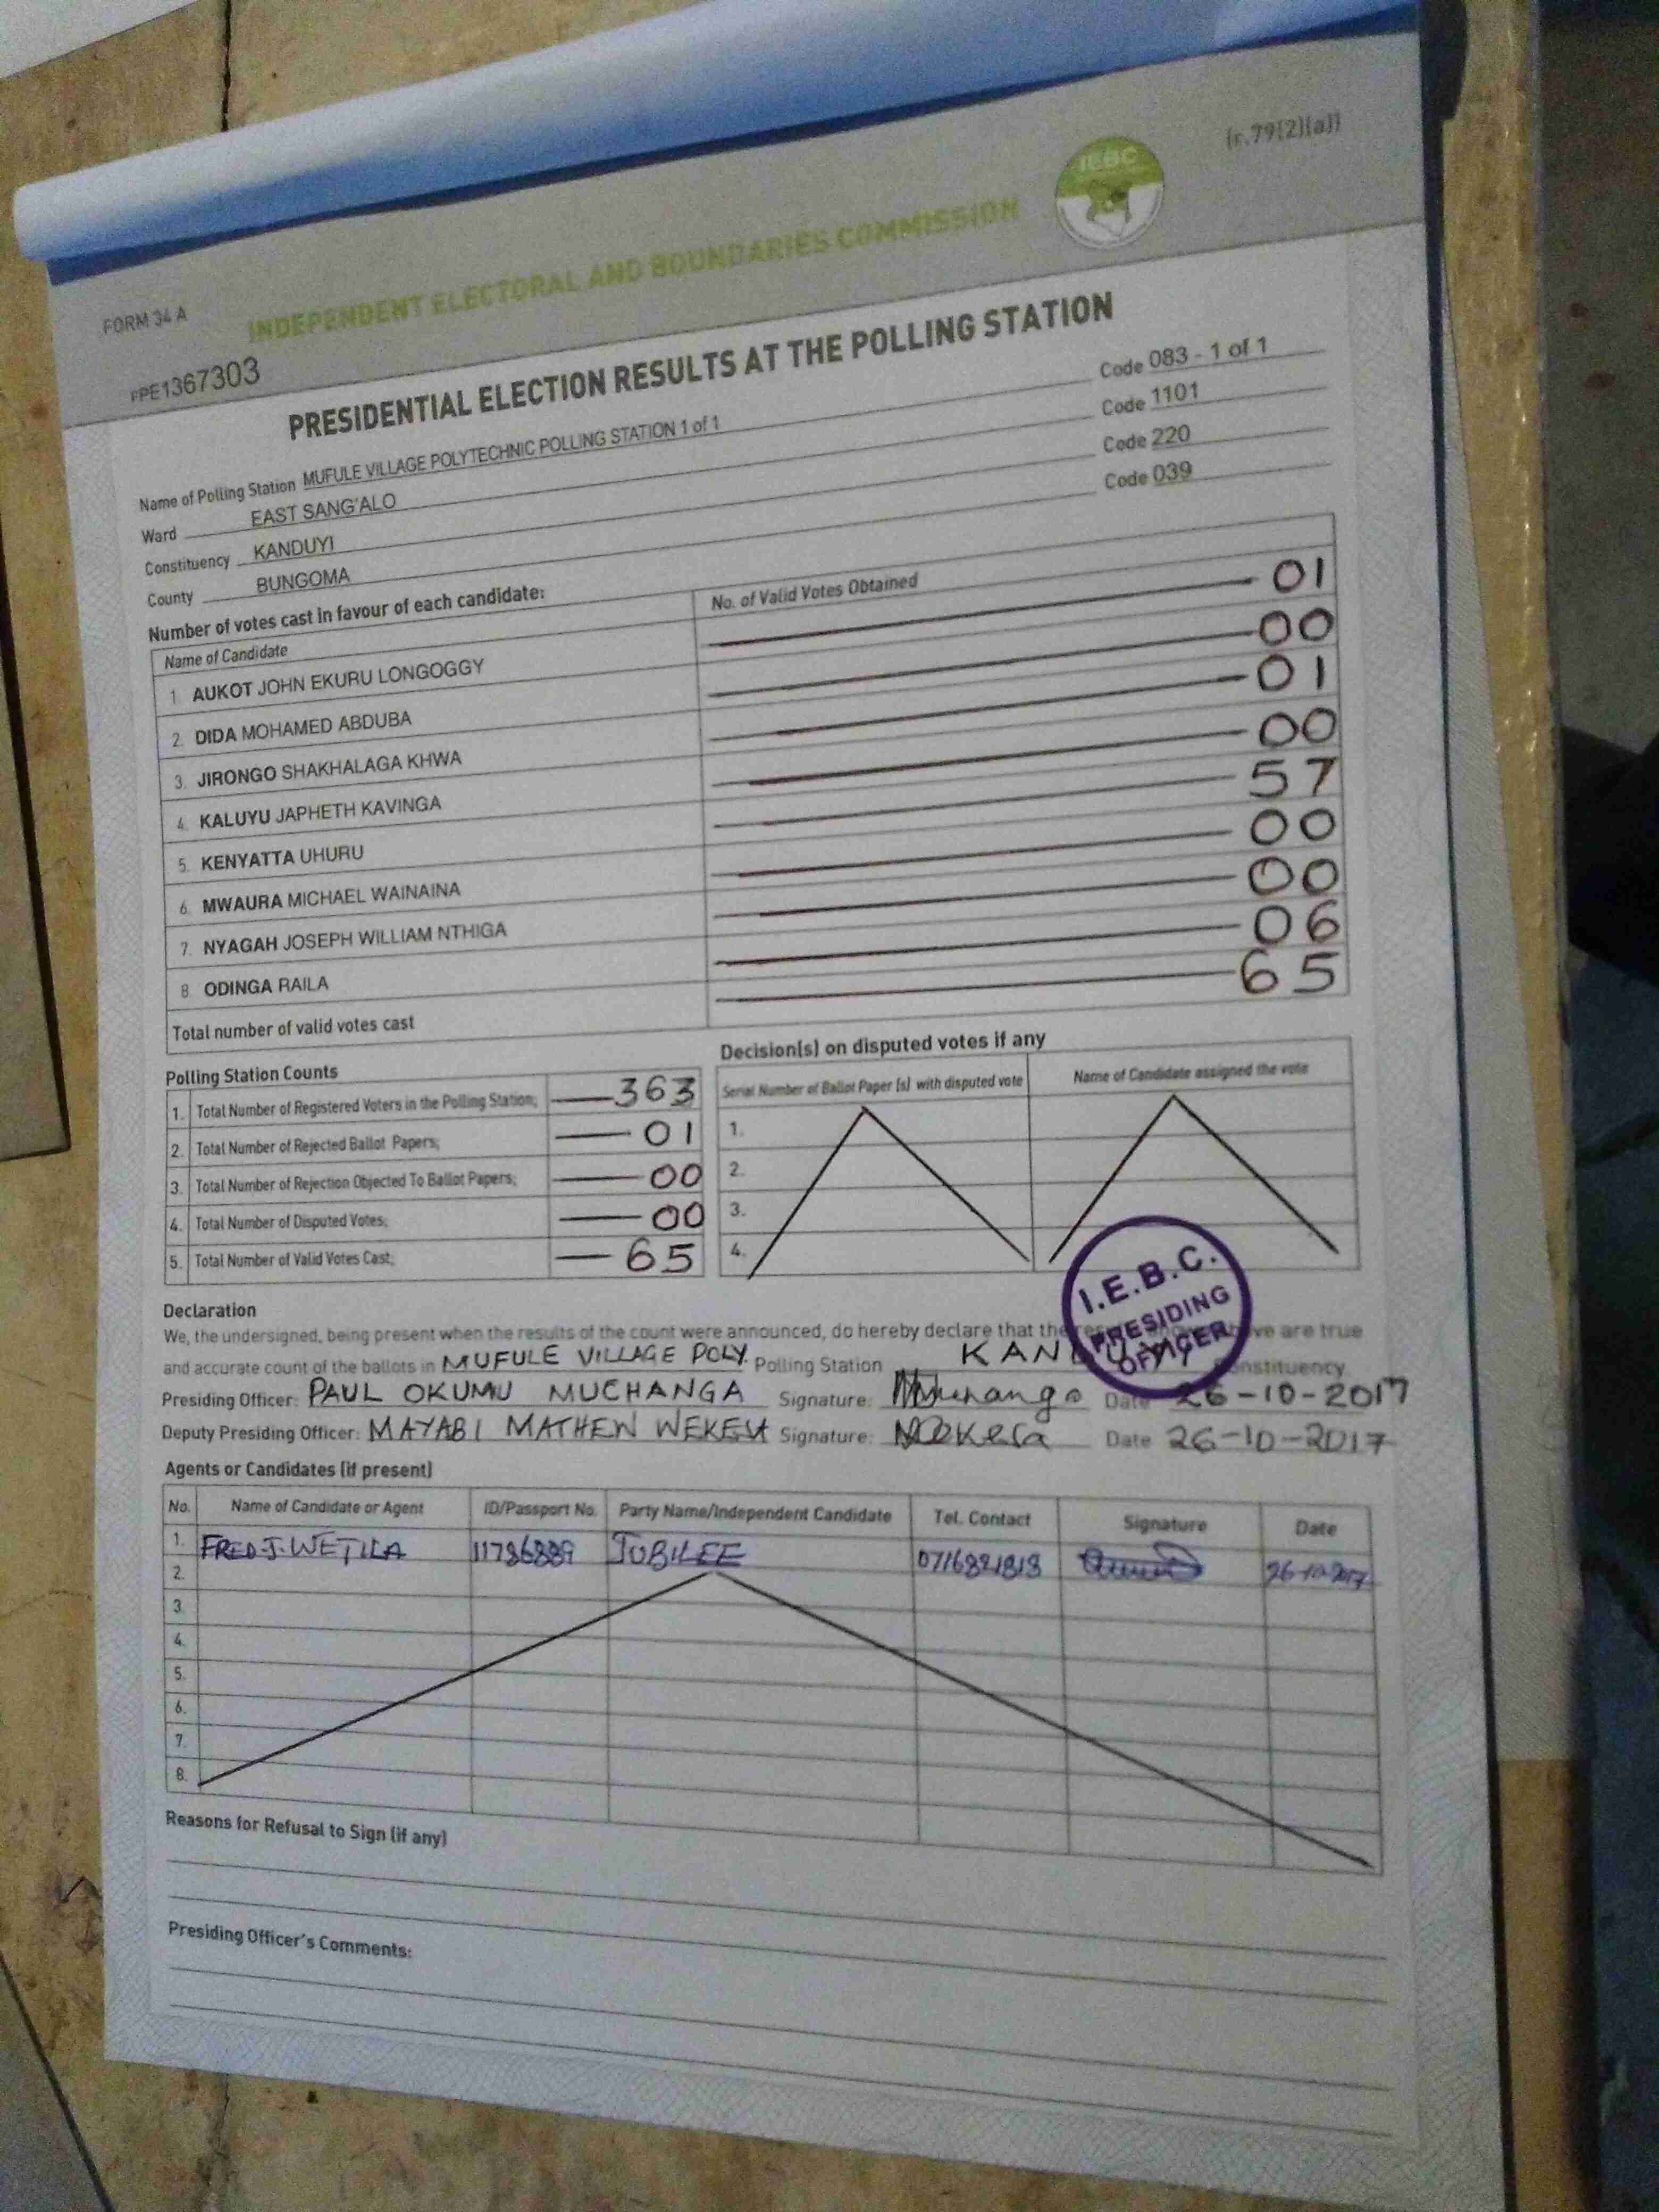 (r.79(2)(a))
IEBC
FORM 34 A
INDEPENDENT ELECTORAL AND BOUNDARIES COMMISSION
FPE1367303
PRESIDENTIAL ELECTION RESULTS AT THE POLLING STATION
Name of Polling Station MUFULE VILLAGE POLYTECHNIC POLLING STATION 1 of 1 Code 083 - 1 of 1
Ward EAST SANG'ALO Code 1101
Constituency KANDUYI Code 220
County BUNGOMA Code 039
Number of votes cast in favour of each candidate:
Name of Candidate No. of Valid Votes Obtained
1. AUKOT JOHN EKURU LONGOGGY 01
2. DIDA MOHAMED ABDUBA 00
3. JIRONGO SHAKHALAGA KHWA 01
4. KALUYU JAPHETH KAVINGA 00
5. KENYATTA UHURU 57
6. MWAURA MICHAEL WAINAINA 00
7. NYAGAH JOSEPH WILLIAM NTHIGA 00
8 ODINGA RAILA 06
Total number of valid votes cast 65
Polling Station Counts
1. Total Number of Registered Voters in the Polling Station; 363
2. Total Number of Rejected Ballot Papers; 01
3. Total Number of Rejection Objected To Ballot Papers; 00
4. Total Number of Disputed Votes; 00
5. Total Number of Valid Votes Cast; 65
Decision(s) on disputed votes if any
Serial Number of Ballot Paper (s) with disputed vote Name of Candidate assigned the vote
1.
2.
3.
4.
I.E.B.C.
PRESIDING
OFFICER
Declaration
We, the undersigned, being present when the results of the count were announced, do hereby declare that the are true
and accurate count of the ballots in MUFULE VILLAGE POLY. Polling Station KANDUYI Constituency
Presiding Officer: PAUL OKUMU MUCHANGA Signature: Date 26-10-2017
Deputy Presiding Officer: MAYABI MATHEW WEKESA Signature: Date 26-10-2017
Agents or Candidates (if present)
No. Name of Candidate or Agent ID/Passport No. Party Name/Independent Candidate Tel. Contact Signature Date
1. FRED J. WETILA JUBILEE 26-10-2017
2.
3.
4.
5.
6.
7.
8.
Reasons for Refusal to Sign (if any)
Presiding Officer's Comments: